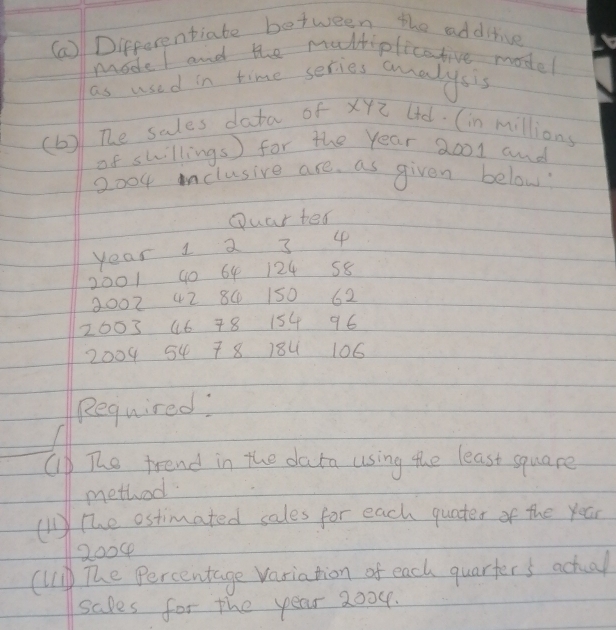 (a) Differentiate between the additive
model and the multiplicative model
as used in time series analysis
(b) The sales data of XYZ Ltd. (in millions
of shillings) for the year 2001 and
2004 inclusive are as given below:
Quarter
Year 1 2 3 4
2001 40 64 124 58
2002 42 84 150 62
2003 46 78 154 96
2004 54 78 184 106
Required:
(i) The trend in the data using the least square
method.
(ii) The estimated sales for each quater of the year
2004
(iii) The Percentage Variation of each quarter's actual
sales for the year 2004.